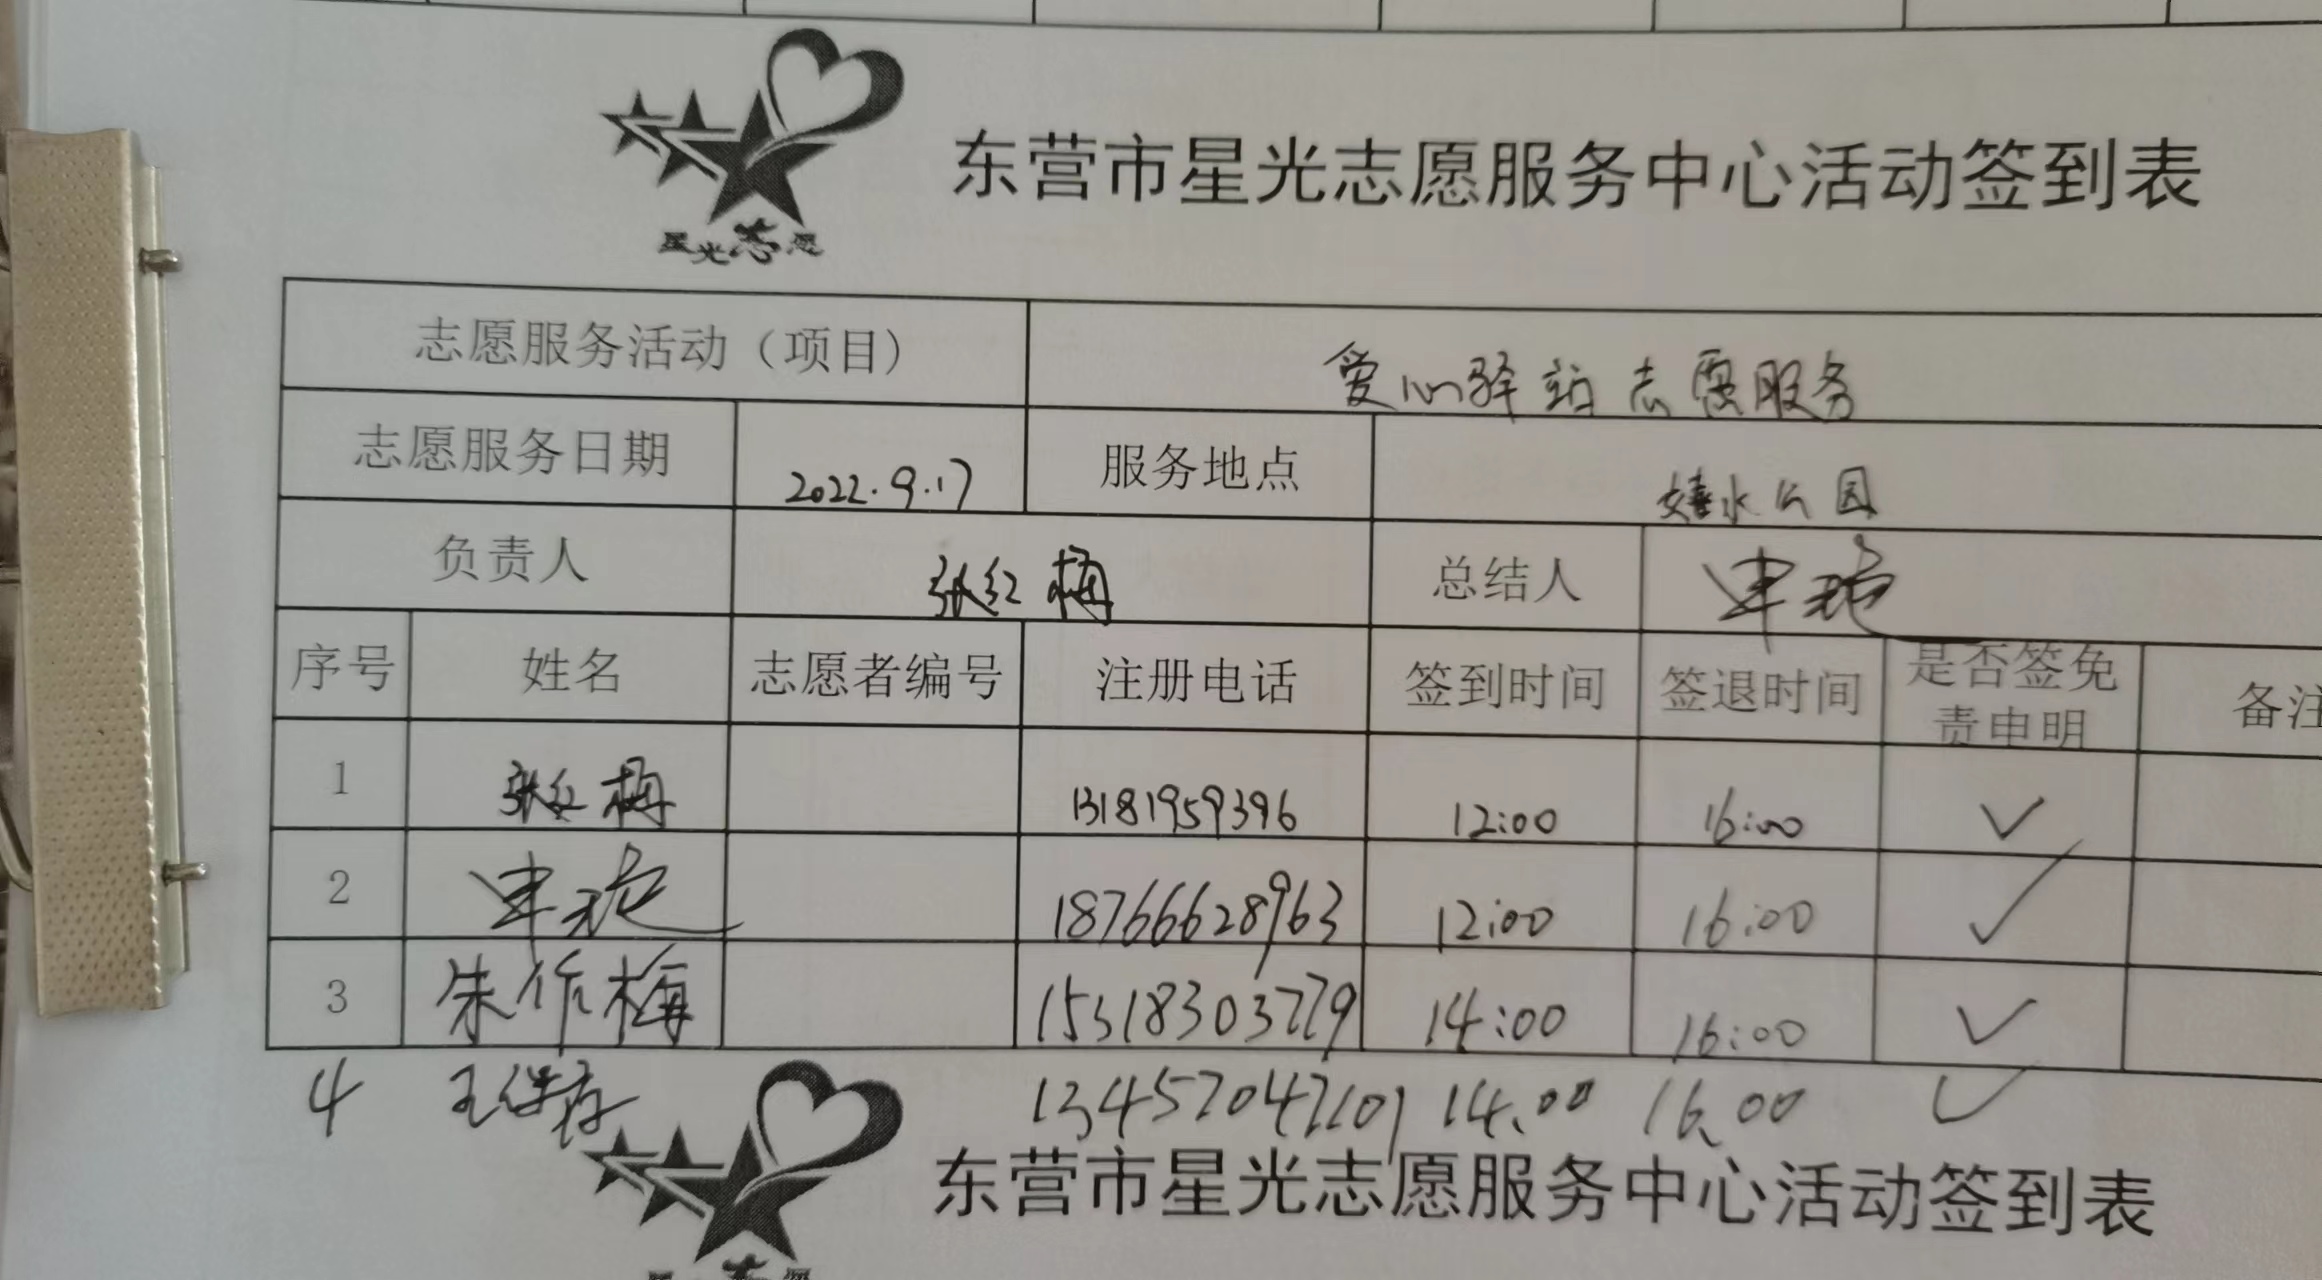 星光志愿
东营市星光志愿服务中心活动签到表
志愿服务活动（项目） 爱心驿站志愿服务
志愿服务日期 2022.9.17 服务地点 嬉水公园
负责人 张红梅 总结人
序号 姓名 志愿者编号 注册电话 签到时间 签退时间 是否签免责申明 备注
1 张红梅 13181959396 12:00 16:00 ✓
2 18766628963 12:00 16:00 ✓
3 朱作梅 15318303779 14:00 16:00 ✓
4 14:00 16:00 ✓
东营市星光志愿服务中心活动签到表